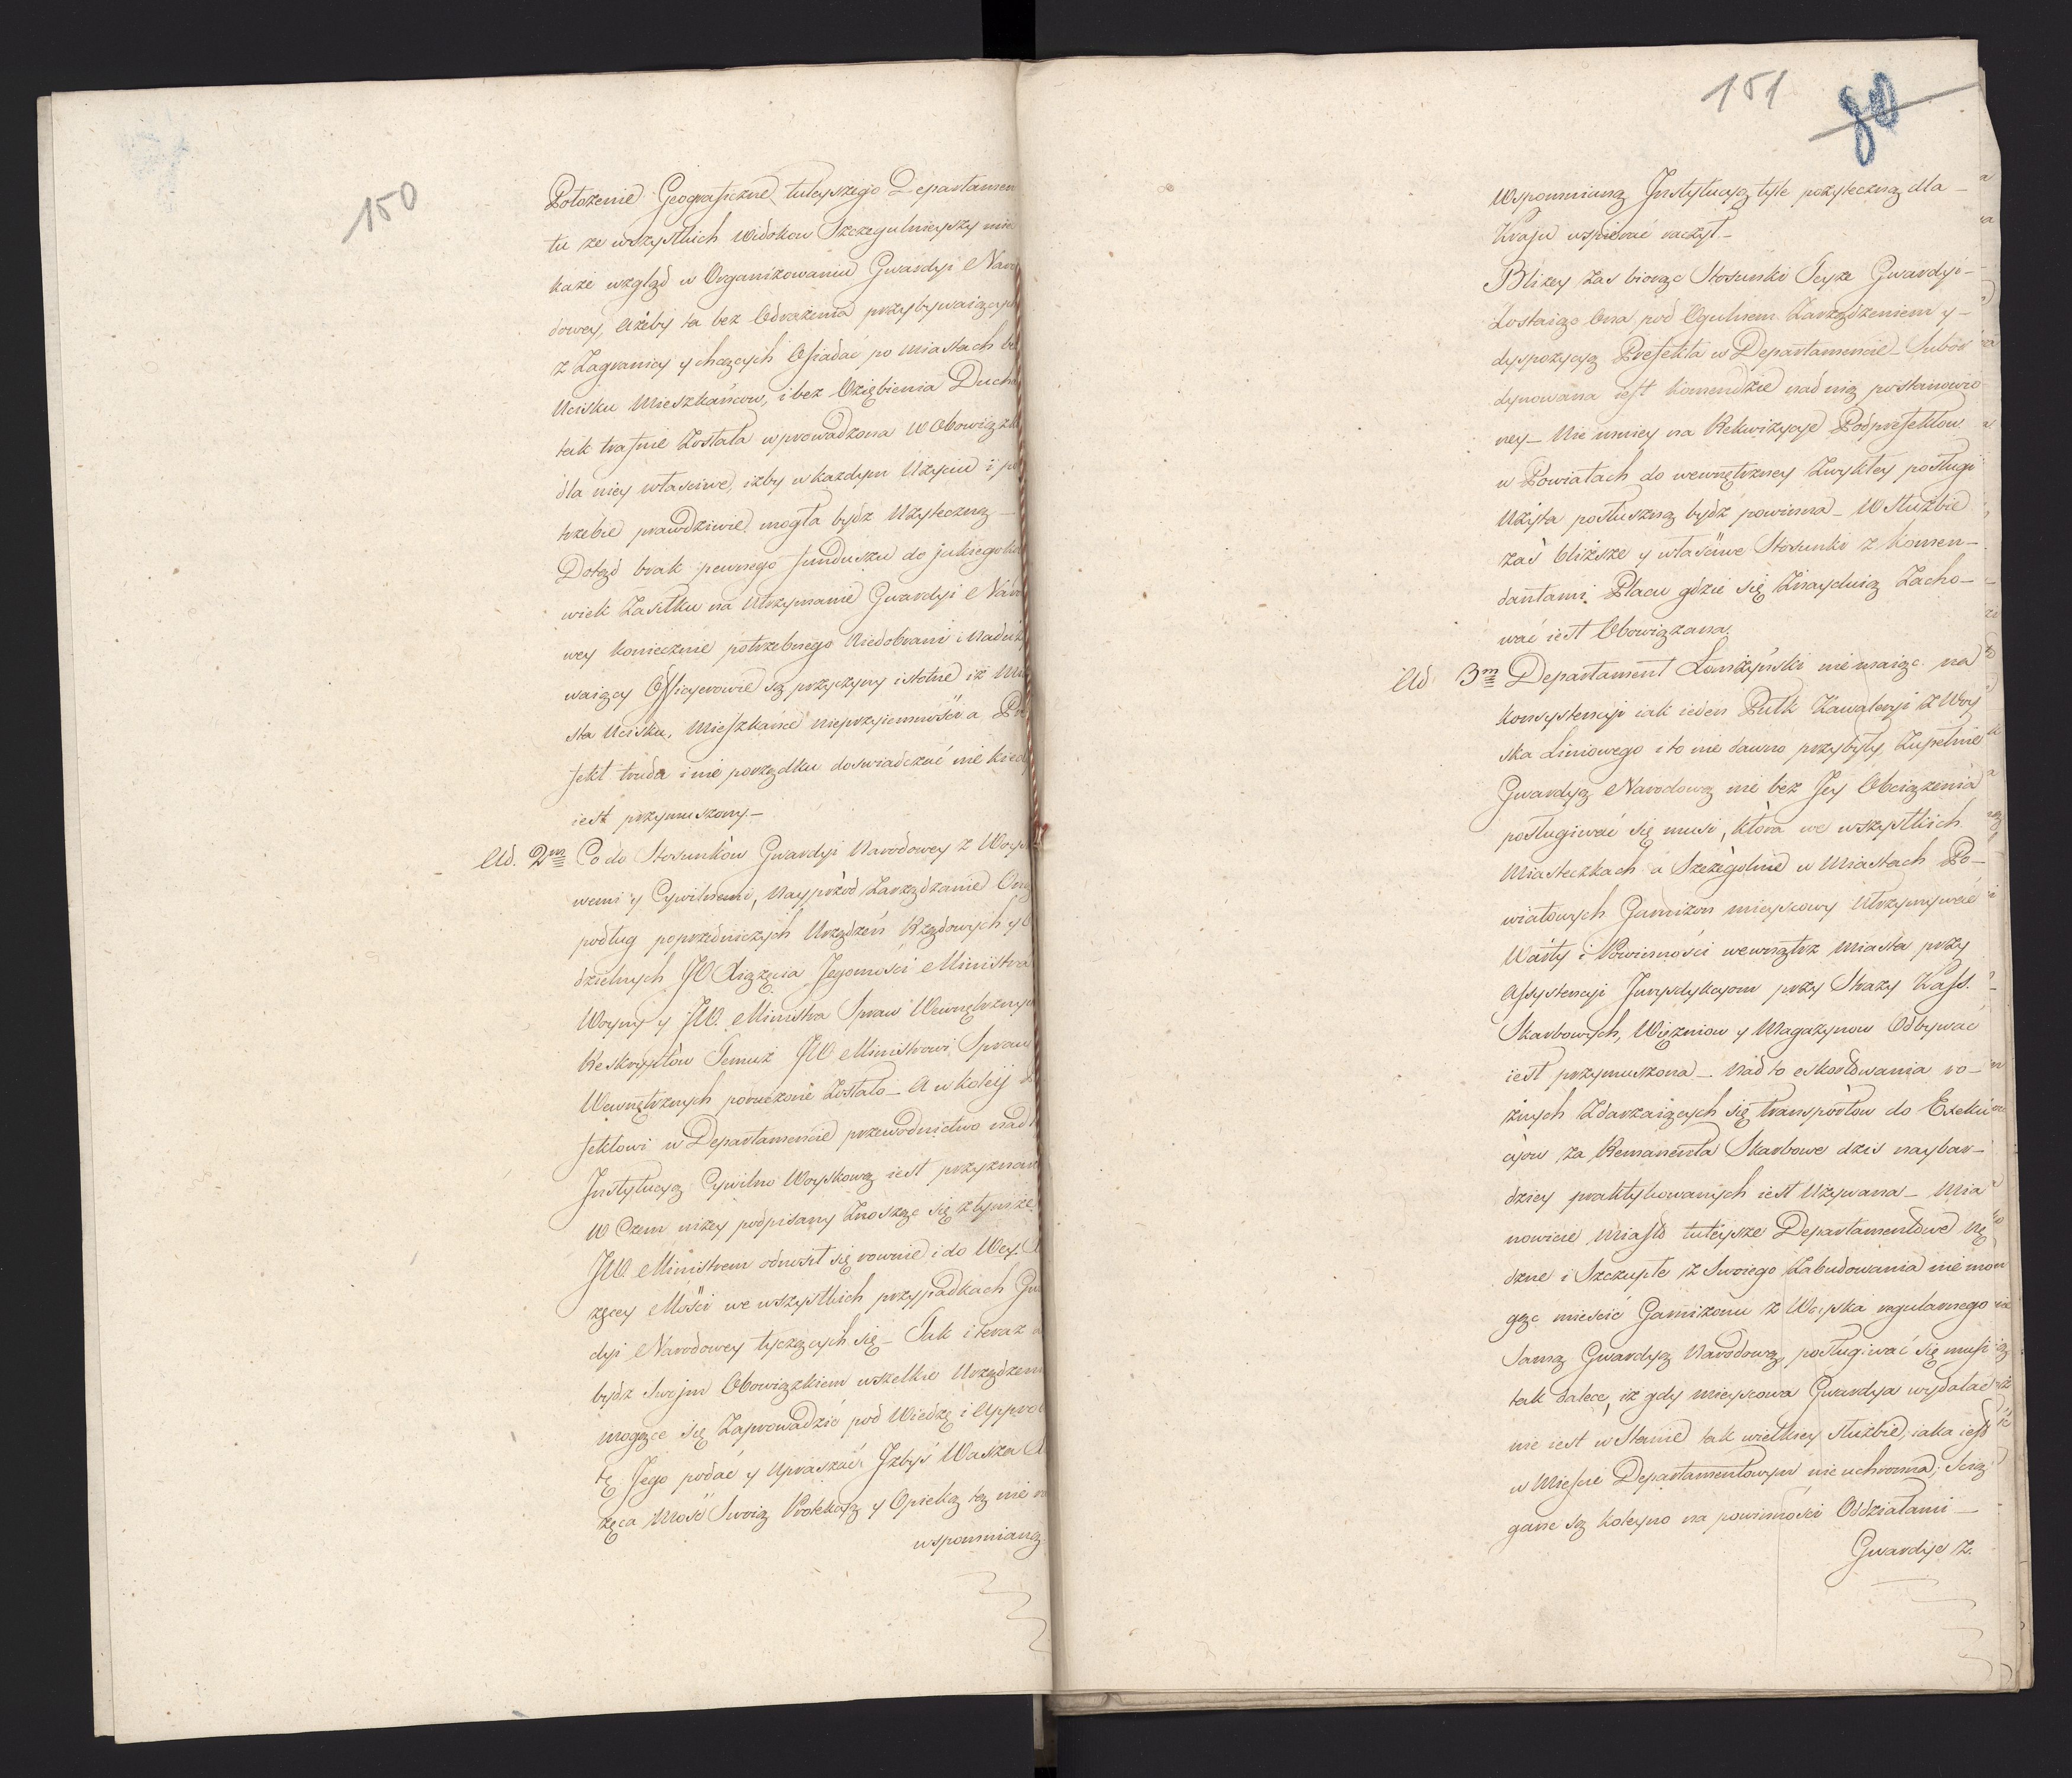 150
Położenie Geograficzne tuteyszego Departamen
tu ze wszystkich widokow Szczegulnieyszy mie
każe wzgląd w Organizowaniu Gwardyi Naro
dowey, ażeby ta bez Odrażenia przybywaiących
z Zagranicy y chcących Osiadać po miastach be
Ucisku Mieszkańcow, i bez Oziębienia Ducha
tak trafnie Została wprowadzona w Obowiązki
dla niey własciwe, iżby w każdym Użyciu i po
trzebie prawdziwie mogła bydz Użyteczną —
Dotąd brak pewnego funduszu do jakiegokol
wiek Zasiłku na Utrzymanie Gwardyi Naro
wey koniecznie potrzebnego Niedobrani i Naduży
waiący Officyerowie są przyczyny istotne iż Mia
sta Ucisku, Mieszkańce nieprzyiemności a Pre
fekt trudu i nie porządku doswiadczać nie kiedy
iest przymuszony. —
Ad. 2m Co do Stosunków Gwardyi Narodowey z Woysko
wemi y Cywilnemi, Nayprzód Zarządzanie Oną
podług poprzedniczych Urządzeń Rządowych y O
dzielnych JO Xiążęcia Jegomości Ministra
Woyny y JW. Ministra Spraw Wewnętrznych
Reskryptów Temuż JW Ministrowi Spraw
Wewnętrznych poruczone Zostało — A w koleij P
fektowi w Departamencie przewodnictwo nad t
Instytucyą Cywilno Woyskową iest przyznan
W Czem niżey podpisany Znosząc się z tymże
JW. Ministrem odnosił się rownie i do Wey. X
żęcey Mości we wszystkich przypadkach Gw
dyi Narodowey tyczących się — Tak i teraz
bydz Swojm Obowiązkiem wszelkie Urządzeni
mogące się Zaprowadzić pod Wiedzę i Approb
tę Jego podać y Upraszać: Izbyś Wasza X
żęca Mość Swoią Protekcyą y Opieką tą nie
wspomnianą
151
80
Wspomnianą Instytucyą tyle pożyteczną dla —
Kraju wspierać raczył —
Bliżey zas biorąc Stosunki Teyże Gwardyi —
Zostaiąc Ona pod Ogulnem Zarządzeniem y —
dyspozycyą Prefekta w Departamencie — Subor
dynowana iest komendzie nad nią postanowio
ney — Nie mniey na Rekwizycye Podprefektow
w Powiatach do wewnętrzney Zwykłey posługi
Użyta posłuszną bydz powinna — W Służbie
zaś bliższe y własciwe Stosunki z komen —
dantami Placu gdzie się Znayduią Zacho —
wać iest Obowiązana.
Ad 3m Departament Łomżyński nie maiąc na
konsystencyi iak ieden Pułk Kawaleryi z Woy
ska Liniowego i to nie dawno przybyły, Zupełnie
Gwardyą Narodową nie bez Jey Obciążenia
posługiwać się musi, która we wszystkich
Miasteczkach a Szczegolnie w Miastach Po —
wiatowych Garnizon mieyscowy Utrzymywać
Warty i Powinności wewnątrz miasta przy
Assystencyi Jurysdykcyom przy Straży Kass.
Skarbowych, Więzniow y Magazynow Odbywać
iest przymuszona —. Nadto eskortowania ro —
żnych Zdarzaiących się transportow do Exeku
cyow za Remanenta Skarbowe dzis naybar —
dziey praktykowanych iest Używana — Mia
nowicie Miasto tuteysze Departamentowe Nę
dzne i Szczupłe z Swoiego Zabudowania nie mo
gąc mieścić Garnizonu z Woyska regularnego
Samą Gwardyą Narodową posługiwać się musi
tak dalece, iż gdy mieyscowa Gwardya wydołać
nie iest w Stanie tak wielkiey służbie, iaka iest
w Mieście Departamentowym nieuchronna; Scią
gane są koleyno na powinności Oddziałami —
Gwardye z.